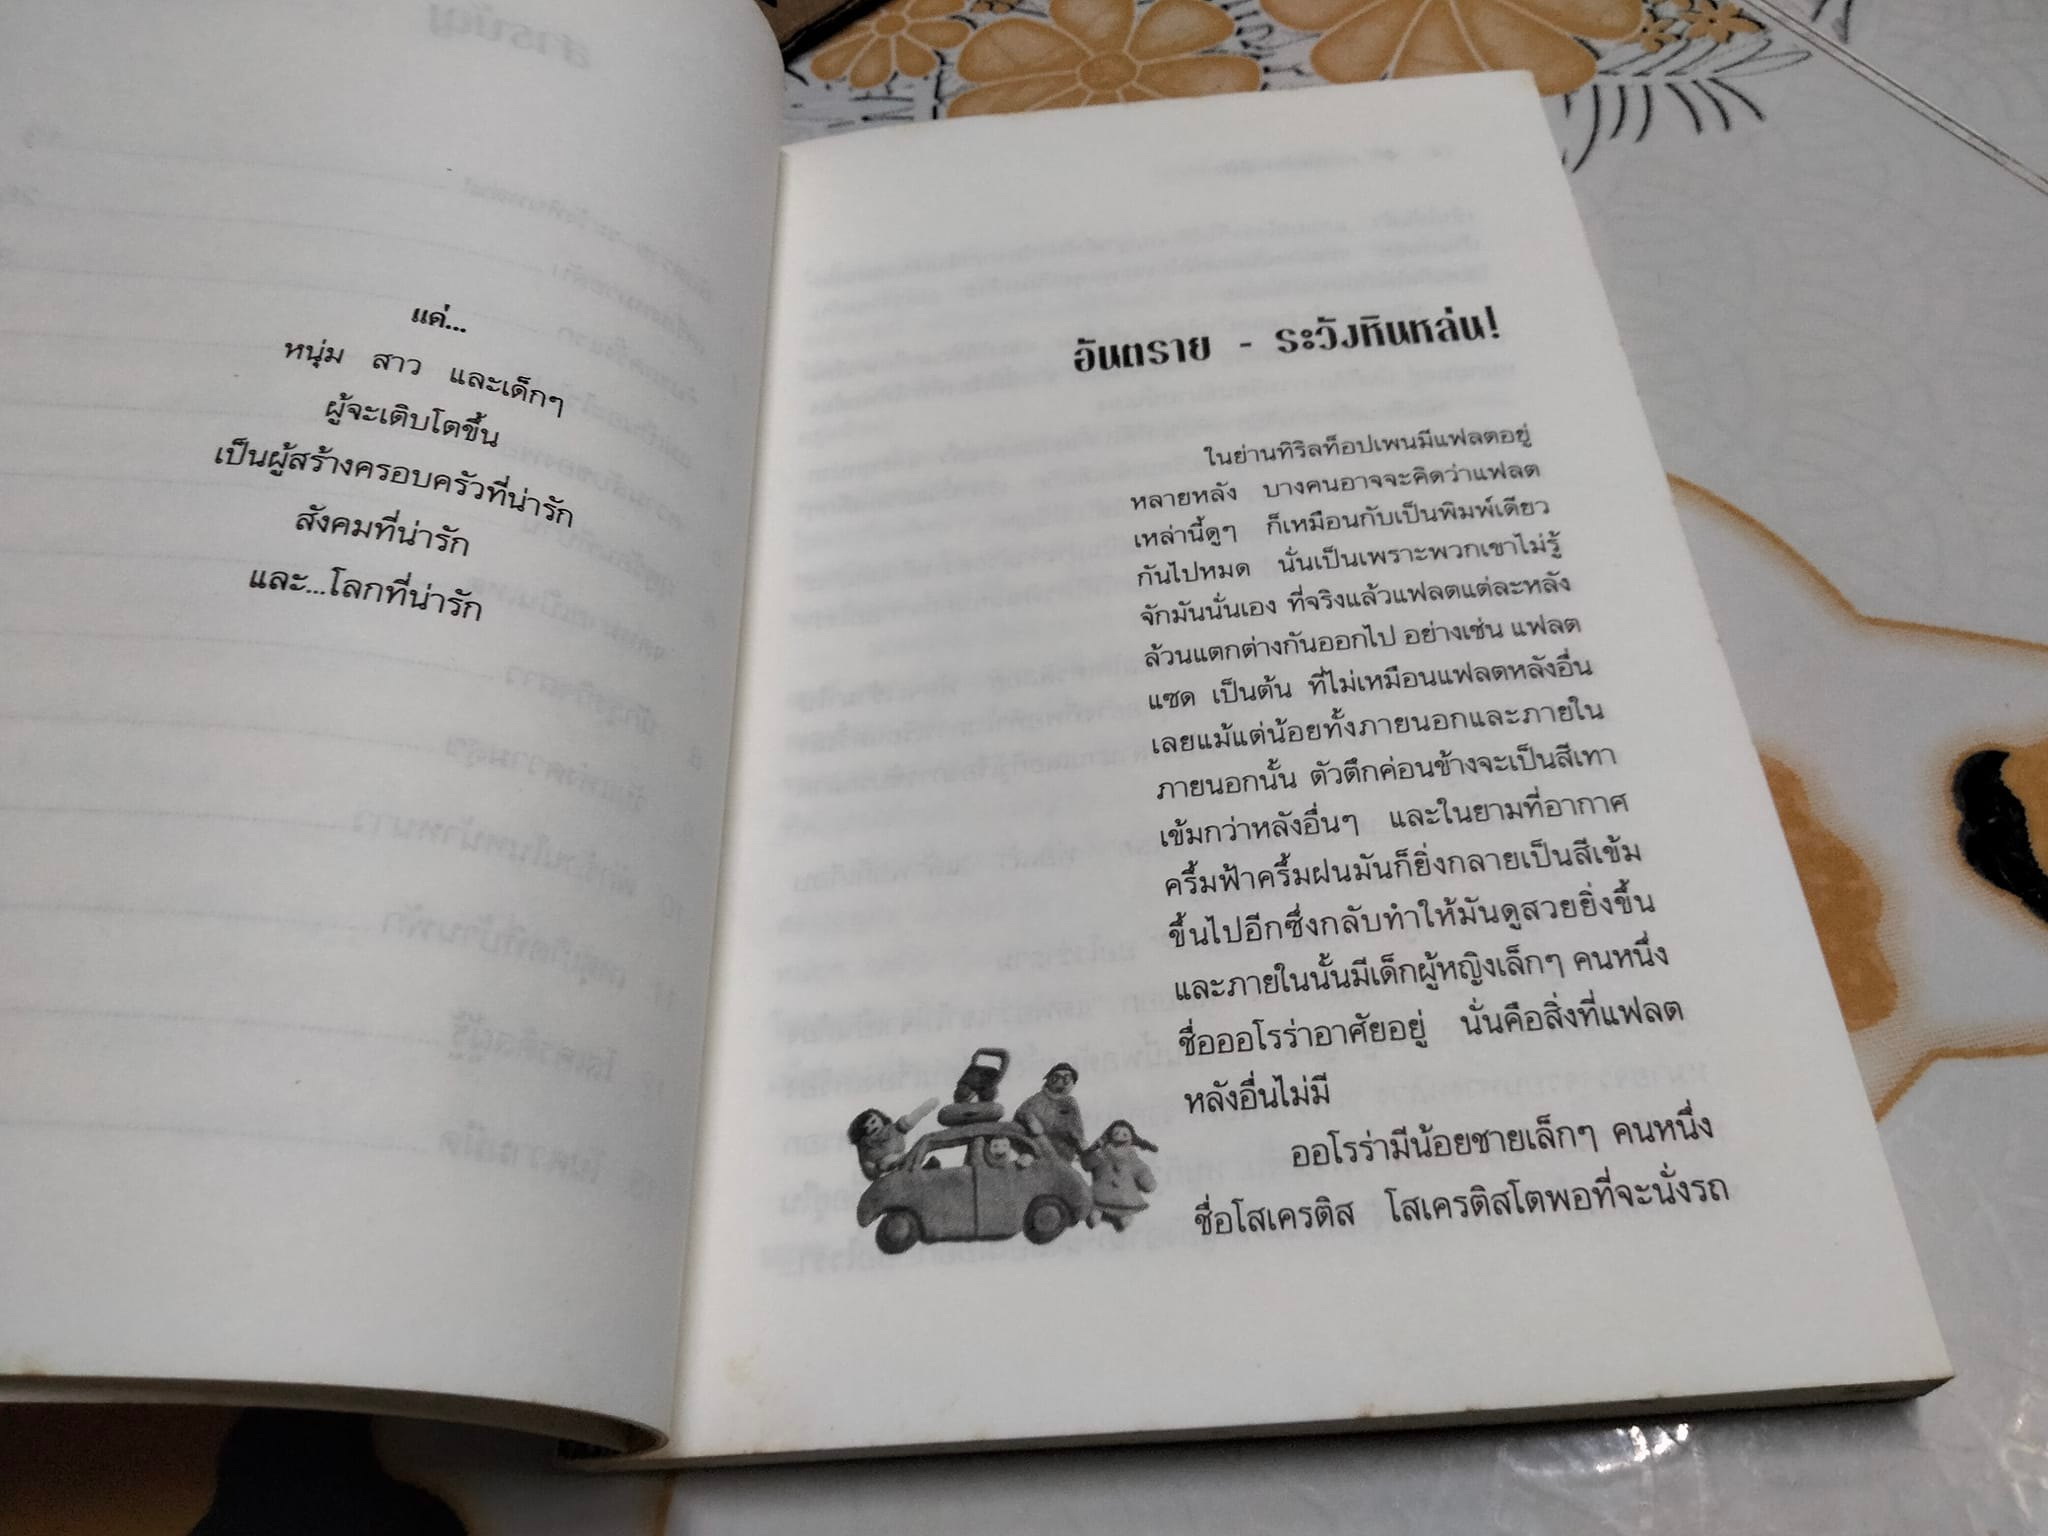 แด่...
หนุ่ม สาว และเด็กๆ
ผู้จะเติบโตขึ้น
เป็นผู้สร้างครอบครัวที่น่ารัก
สังคมที่น่ารัก
และ...โลกที่น่ารัก
อันตราย - ระวังหินหล่น!
ในย่านทิริลท็อปเพนมีแฟลตอยู่
หลายหลัง บางคนอาจจะคิดว่าแฟลต
เหล่านี้ดูๆ ก็เหมือนกับเป็นพิมพ์เดียว
กันไปหมด นั่นเป็นเพราะพวกเขาไม่รู้
จักมันนั่นเอง ที่จริงแล้วแฟลตแต่ละหลัง
ล้วนแตกต่างกันออกไป อย่างเช่น แฟลต
แซด เป็นต้น ที่ไม่เหมือนแฟลตหลังอื่น
เลยแม้แต่น้อยทั้งภายนอกและภายใน
ภายนอกนั้น ตัวตึกค่อนข้างจะเป็นสีเทา
เข้มกว่าหลังอื่นๆ และในยามที่อากาศ
ครึ้มฟ้าครึ้มฝนมันก็ยิ่งกลายเป็นสีเข้ม
ขึ้นไปอีกซึ่งกลับทำให้มันดูสวยยิ่งขึ้น
และภายในนั้นมีเด็กผู้หญิงเล็กๆ คนหนึ่ง
ชื่อออโรร่าอาศัยอยู่ นั่นคือสิ่งที่แฟลต
หลังอื่นไม่มี
ออโรร่ามีน้อยชายเล็กๆ คนหนึ่ง
ชื่อโสเครติส โสเครติสโตพอที่จะนั่งรถ